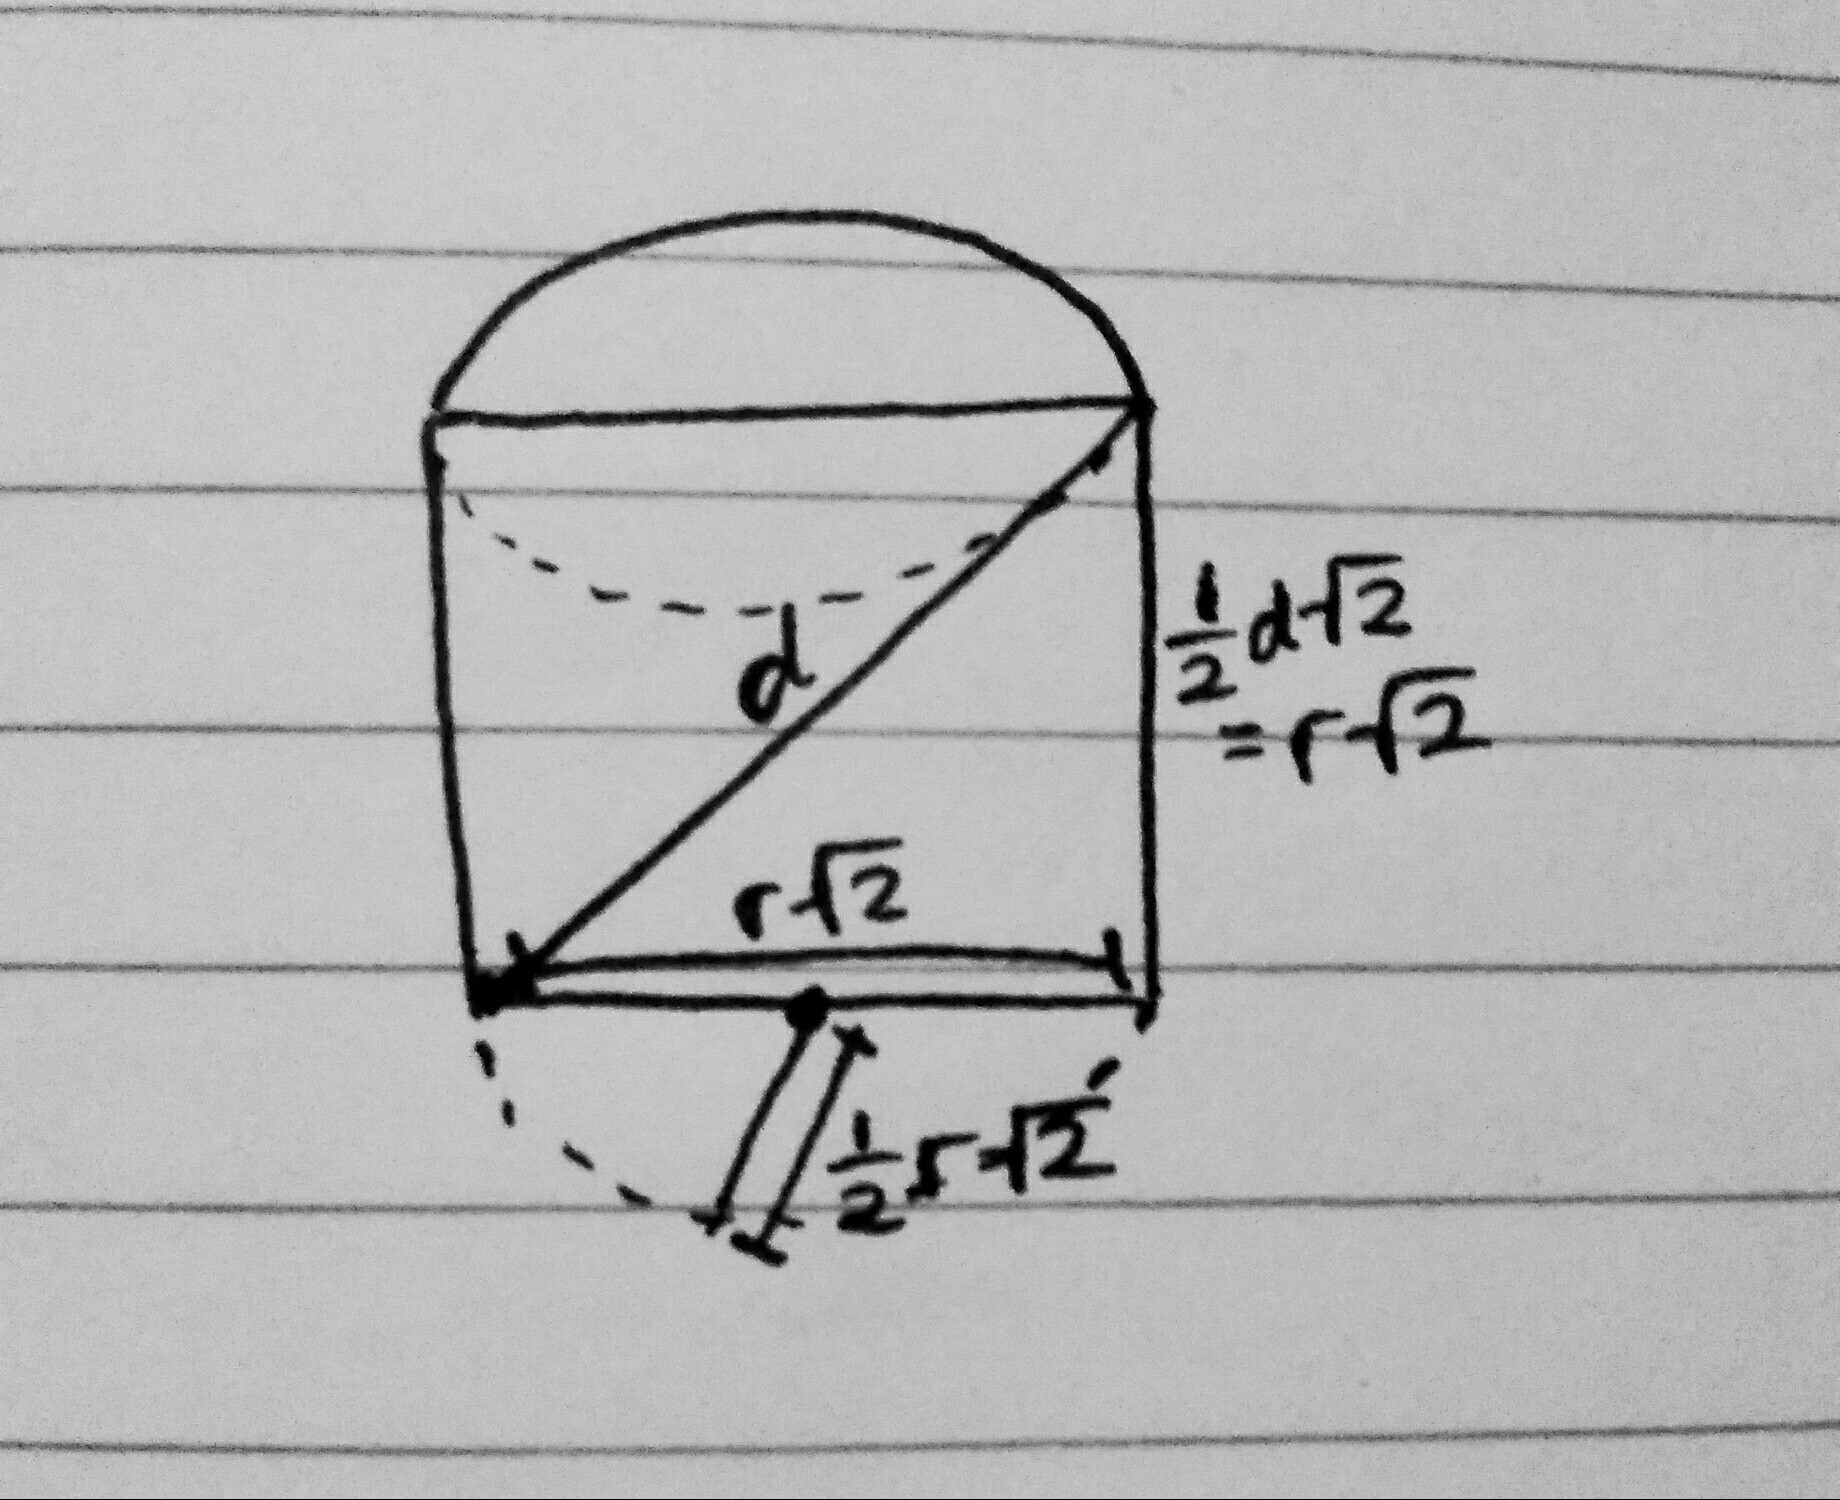 d
½d√2
= r√2
r√2
½r√2